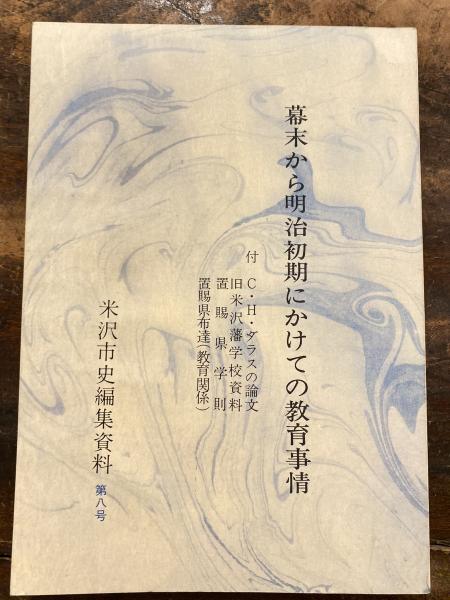 幕末から明治初期にかけての教育事情
付 C・H・ダラスの論文
旧米沢藩学校資料
置賜県学則
置賜県布達(教育関係)
米沢市史編集資料 第八号